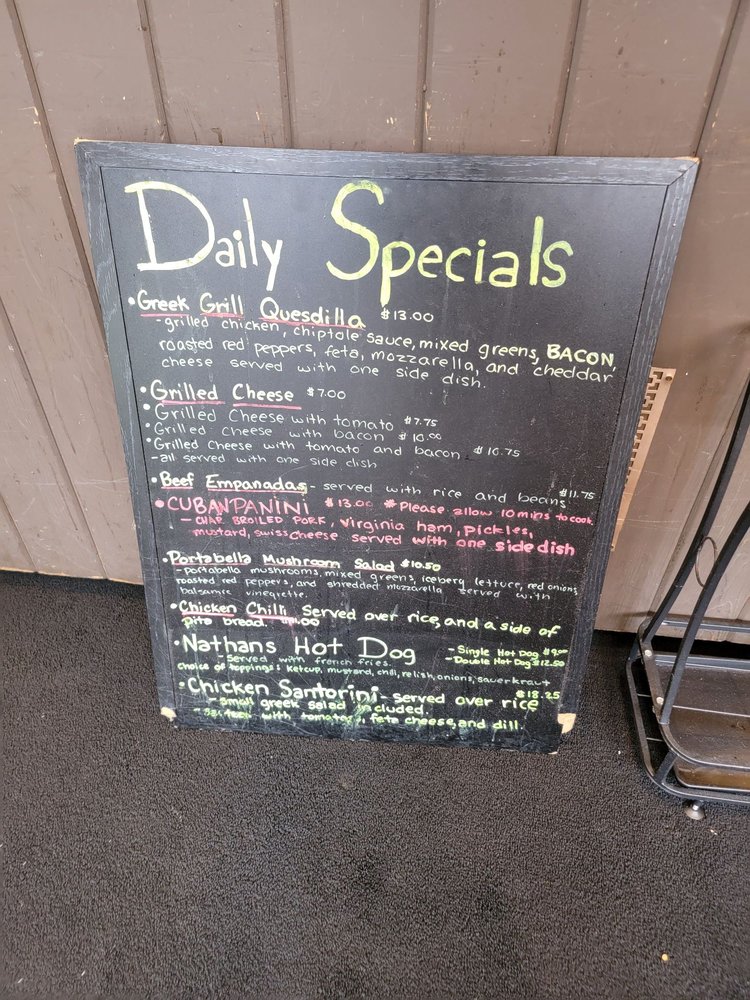 Daily Specials
• Greek Grill Quesdilla $13.00
-grilled chicken, chiptole sauce, mixed greens, BACON,
roasted red peppers, feta, mozzarella, and cheddar
cheese served with one side dish.
• Grilled Cheese $7.00
• Grilled Cheese with tomato $7.75
• Grilled Cheese with bacon $10.00
• Grilled Cheese with tomato and bacon $10.75
-all served with one side dish
• Beef Empanadas - served with rice and beans $11.75
• CUBAN PANINI $13.00 *Please allow 10 mins to cook.
- CHAR BROILED PORK, Virginia ham, pickles,
mustard, swiss cheese served with one side dish
• Portabella Mushroom Salad $10.50
-portabella mushrooms, mixed greens, iceberg lettuce, red onions,
roasted red peppers, and shredded mozzarella served with
balsamic vinegrette.
• Chicken Chilli Served over rice, and a side of
pita bread.
• Nathans Hot Dog - Single Hot Dog $9.00
- Served with french fries. - Double Hot Dog $12.50
choice of toppings: ketcup, mustard, chili, relish, onions, sauerkraut
• Chicken Santorini - served over rice $18.25
- small greek salad included.
- with tomatoes, feta cheese, and dill.